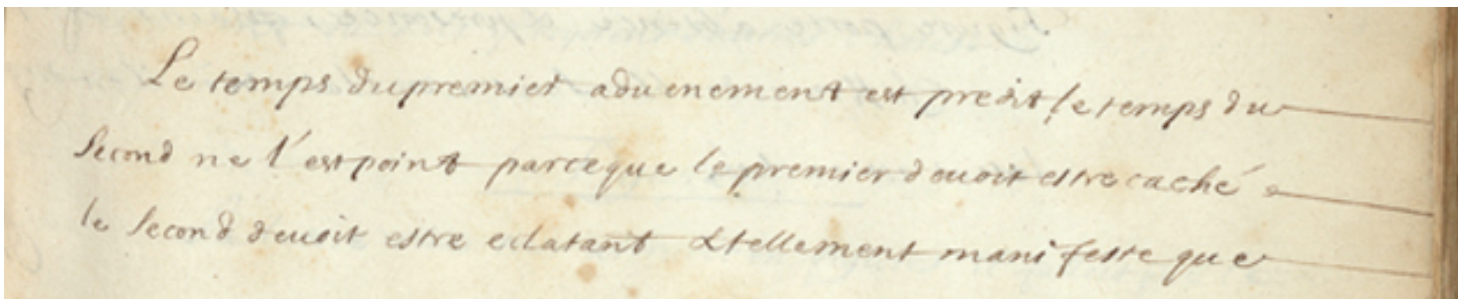 Le temps du premier aduenement est predit le temps du
second ne l'est point parceque le premier deuoit estre caché
le second deuoit estre eclatant & tellement manifeste que